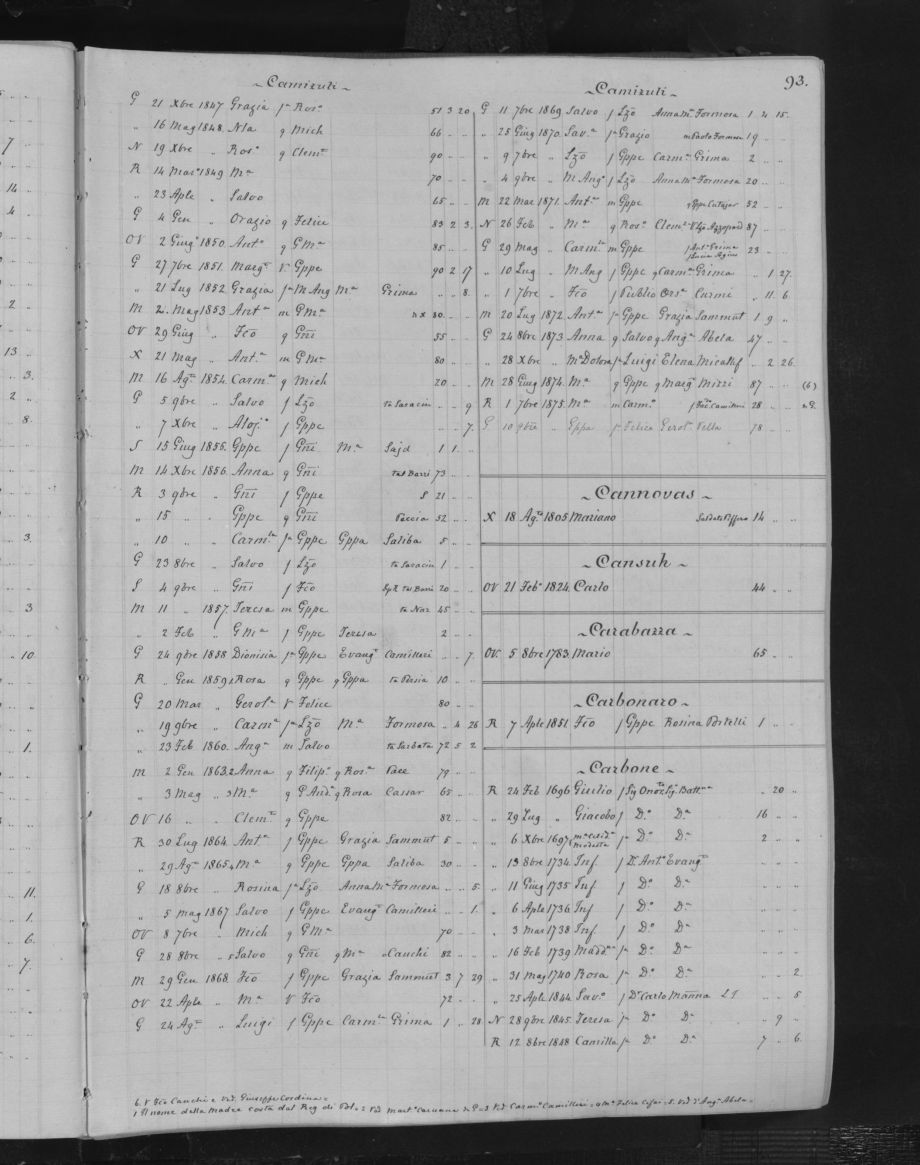 93.
~Camizuti~
G 21 Xbre 1847 Grazia fa Rosa 51 3 20
„ 16 Mag 1848 Nla q Mich 66 .. ..
N 19 Xbre „ Rosa q Clemte 90 .. ..
R 14 Mar 1849 Ma 70 .. ..
„ 23 Aple „ Salvo 65 .. ..
G 4 Gen „ Orazio q Felice 83 2 3
OV 2 Giug 1850 Anto q GMa 85 .. ..
G 27 7bre 1851 Margta Va Gppe 90 2 17
„ 21 Lug 1852 Grazia fa M Ang Ma Grima .. .. 8
M 2 Mag 1853 Anta m GMa 80 .. ..
OV 29 Giug „ Fco q Gni 55 .. ..
X 21 Mag „ Anta m GMa 80 .. ..
M 16 Agto 1854 Carma q Mich 20 .. ..
G 5 9bre „ Salvo f Lzo ta Saracin .. .. 9
„ 7 Xbre „ Aloja f Gppe .. .. 7
S 15 Giug 1855 Gppe f Gni Ma Sajd 1 1 ..
M 14 Xbre 1856 Anna q Gni tal Barri 73 .. ..
R 3 9bre „ Gni f Gppe S 21 .. ..
„ 15 „ „ Gppe q Gni Peccia 52 .. ..
„ 10 „ „ Carmla fa Gppe Gppa Saliba 5 .. ..
G 23 8bre „ Salvo f Lzo ta Saracin 1 .. ..
S 4 9bre „ Gni f Fco tal Barri 20 .. ..
M 11 „ 1857 Teresa m Gppe ta Nar 45 .. ..
„ 2 Feb „ GMa f Gppe Teresa 2 .. ..
G 24 9bre 1858 Dionisia fa Gppe Evanga Camilleri .. .. 7
R „ Gen 1859 1 Rosa q Gppe q Gppa ta Persia 10 .. ..
G 20 Mar „ Gerola V Felice 80 .. ..
„ 19 9bre „ Carma fa Lzo Ma Formosa .. 4 26
„ 23 Feb 1860 Anga m Salvo ta Sarbata 72 5 2
M 2 Gen 1863 2 Anna q Filipo q Rosa Pace 79 .. ..
„ 3 Mag „ 3 Ma q P Anda q Rosa Cassar 65 .. ..
OV 16 „ „ Clemte q Gppe 82 .. ..
R 30 Lug 1864 Anta f Gppe Grazia Sammut 5 .. ..
„ 29 Agto 1865 4 Ma q Gppe Gppa Saliba 30 .. ..
G 18 8bre „ Rosina fa Lzo Anna Ma Formosa .. .. 5
„ 5 Mag 1867 Salvo f Gppe Evanga Camilleri .. .. 1
OV 8 7bre „ Mich q GMa 70 .. ..
G 28 8bre „ 5 Salvo q Gni q Ma Cauchi 82 .. ..
M 29 Gen 1868 Fco f Gppe Grazia Sammut 3 7 29
OV 22 Aple „ Ma V Fco 72 .. ..
G 24 Agto „ Luigi f Gppe Carmla Grima 1 .. 28
~Camizuti~
G 11 7bre 1869 Salvo f Lzo Anna Ma Formosa 1 4 15
„ 25 Giug 1870 Sava fa Grazio m Paola Formosa 19 .. ..
„ 9 7bre „ Lzo f Gppe Carma Grima 2 .. ..
„ 4 9bre „ M Anga f Lzo Anna Ma Formosa 20 .. ..
M 22 Mar 1871 Anta m Gppe q Gppe Cutajar 52 .. ..
N 26 Feb „ Ma q Rosa Clema Azzopard 87 .. ..
G 29 Mag „ Carmla m Gppe f Anto Grima f Lucia 23 .. ..
„ 10 Lug „ M Ang f Gppe q Carma Grima .. 1 27
„ 1 7bre „ Fco f Publio Orsa Curmi .. 11 6
M 20 Lug 1872 Anta fa Gppe Grazia Sammut 1 9 „
G 24 8bre 1873 Anna q Salvo q Anga Abela 47 .. ..
„ 28 Xbre „ Ma Dolora fa Luigi Elena Micallef .. 2 26
M 28 Giug 1874 Ma q Gppe q Marga Mizzi 87 .. .. (6)
R 1 7bre 1875 Ma m Carmo f Camilleri 28 .. ..
G 10 9bre „ Gppa fa Felice Gerola Vella 78 .. ..
~Cannovas~
X 18 Agto 1805 Mariano Soldato Piffero 14 .. ..
~Cansuh~
OV 21 Febo 1824 Carlo 44 .. ..
~Carabazza~
OV 5 8bre 1783 Mario 65 .. ..
~Carbonaro~
R 7 Aple 1851 Fco f Gppe Rosina Portelli 1 .. ..
~Carbone~
R 24 Feb 1696 Giulio f Sig Onorto Sig Battna .. 20 ..
„ 29 Lug „ Giacobo f Do Da 16 .. ..
„ 6 Xbre 1697 Modesta fa Do Da 2 .. ..
„ 13 8bre 1734 Inf f Dr Anto Evanga .. .. ..
„ 11 Giug 1735 Inf f Do Da .. .. ..
„ 6 Aple 1736 Inf f Do Da .. .. ..
„ 3 Mar 1738 Inf f Do Da .. .. ..
„ 16 Feb 1739 Maddna fa Do Da .. .. ..
„ 31 Mag 1740 Rosa fa Do Da .. .. 2
„ 25 Aple 1844 Savo f Dr Carlo Marina .. .. 5
N 28 9bre 1845 Teresa fa Do Da .. 9 ..
R 12 8bre 1848 Camilla fa Do Da 7 .. 6
6. V Fco Cauchi e Ved. Giuseppe Cordina=
1 Il nome della Madre costa dal Reg di Pol.= 2 Ved Marto Caruana 3 Ved Carmo Camilleri= 4 Ma Felice = 5. Ved d'Anga Abela=